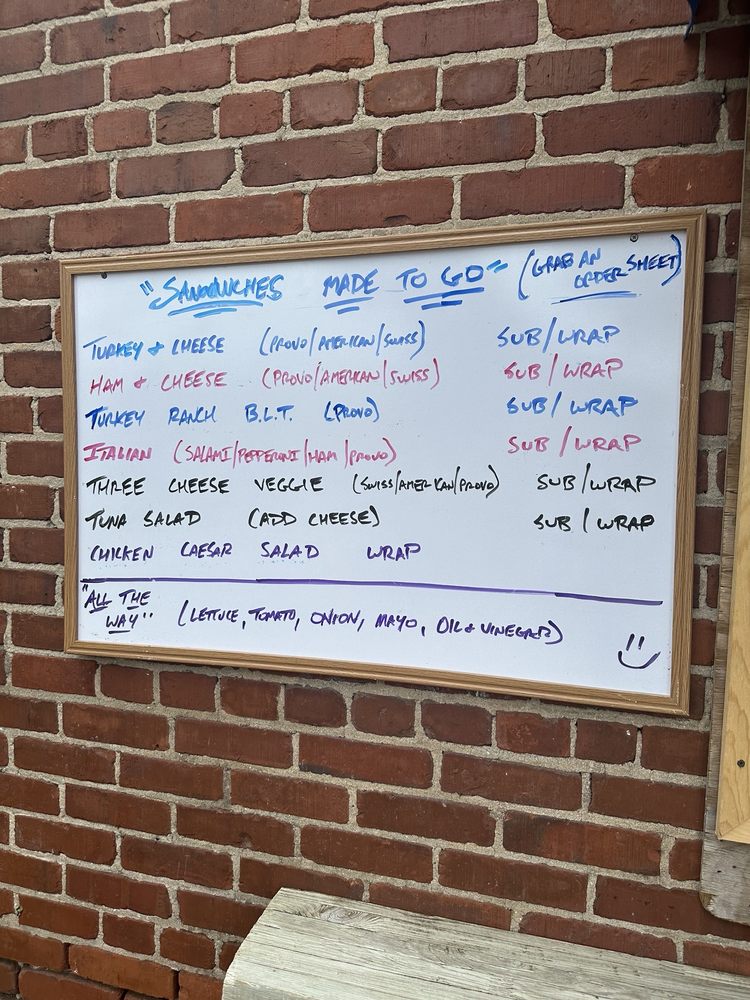 "SANDWICHES MADE TO GO" (GRAB AN ORDER SHEET)
TURKEY & CHEESE (PROVO/AMERICAN/SWISS) SUB/WRAP
HAM & CHEESE (PROVO/AMERICAN/SWISS) SUB/WRAP
TURKEY RANCH B.L.T. (PROVO) SUB/WRAP
ITALIAN (SALAMI/PEPPERONI/HAM/PROVO) SUB/WRAP
THREE CHEESE VEGGIE (SWISS/AMERICAN/PROVO) SUB/WRAP
TUNA SALAD (ADD CHEESE) SUB/WRAP
CHICKEN CAESAR SALAD WRAP
"ALL THE WAY" (LETTUCE, TOMATO, ONION, MAYO, OIL & VINEGAR)